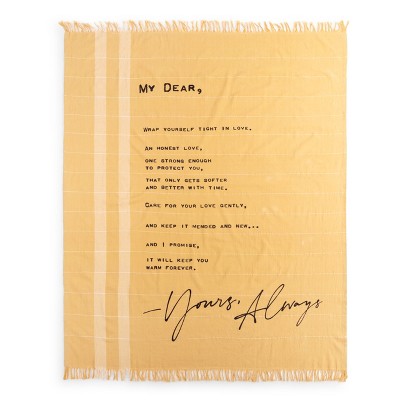 MY DEAR,
WRAP YOURSELF TIGHT IN LOVE.
AN HONEST LOVE,
ONE STRONG ENOUGH
TO PROTECT YOU,
THAT ONLY GETS SOFTER
AND BETTER WITH TIME.
CARE FOR YOUR LOVE GENTLY,
AND KEEP IT MENDED AND NEW...
AND I PROMISE,
IT WILL KEEP YOU
WARM FOREVER.
—Yours, Always